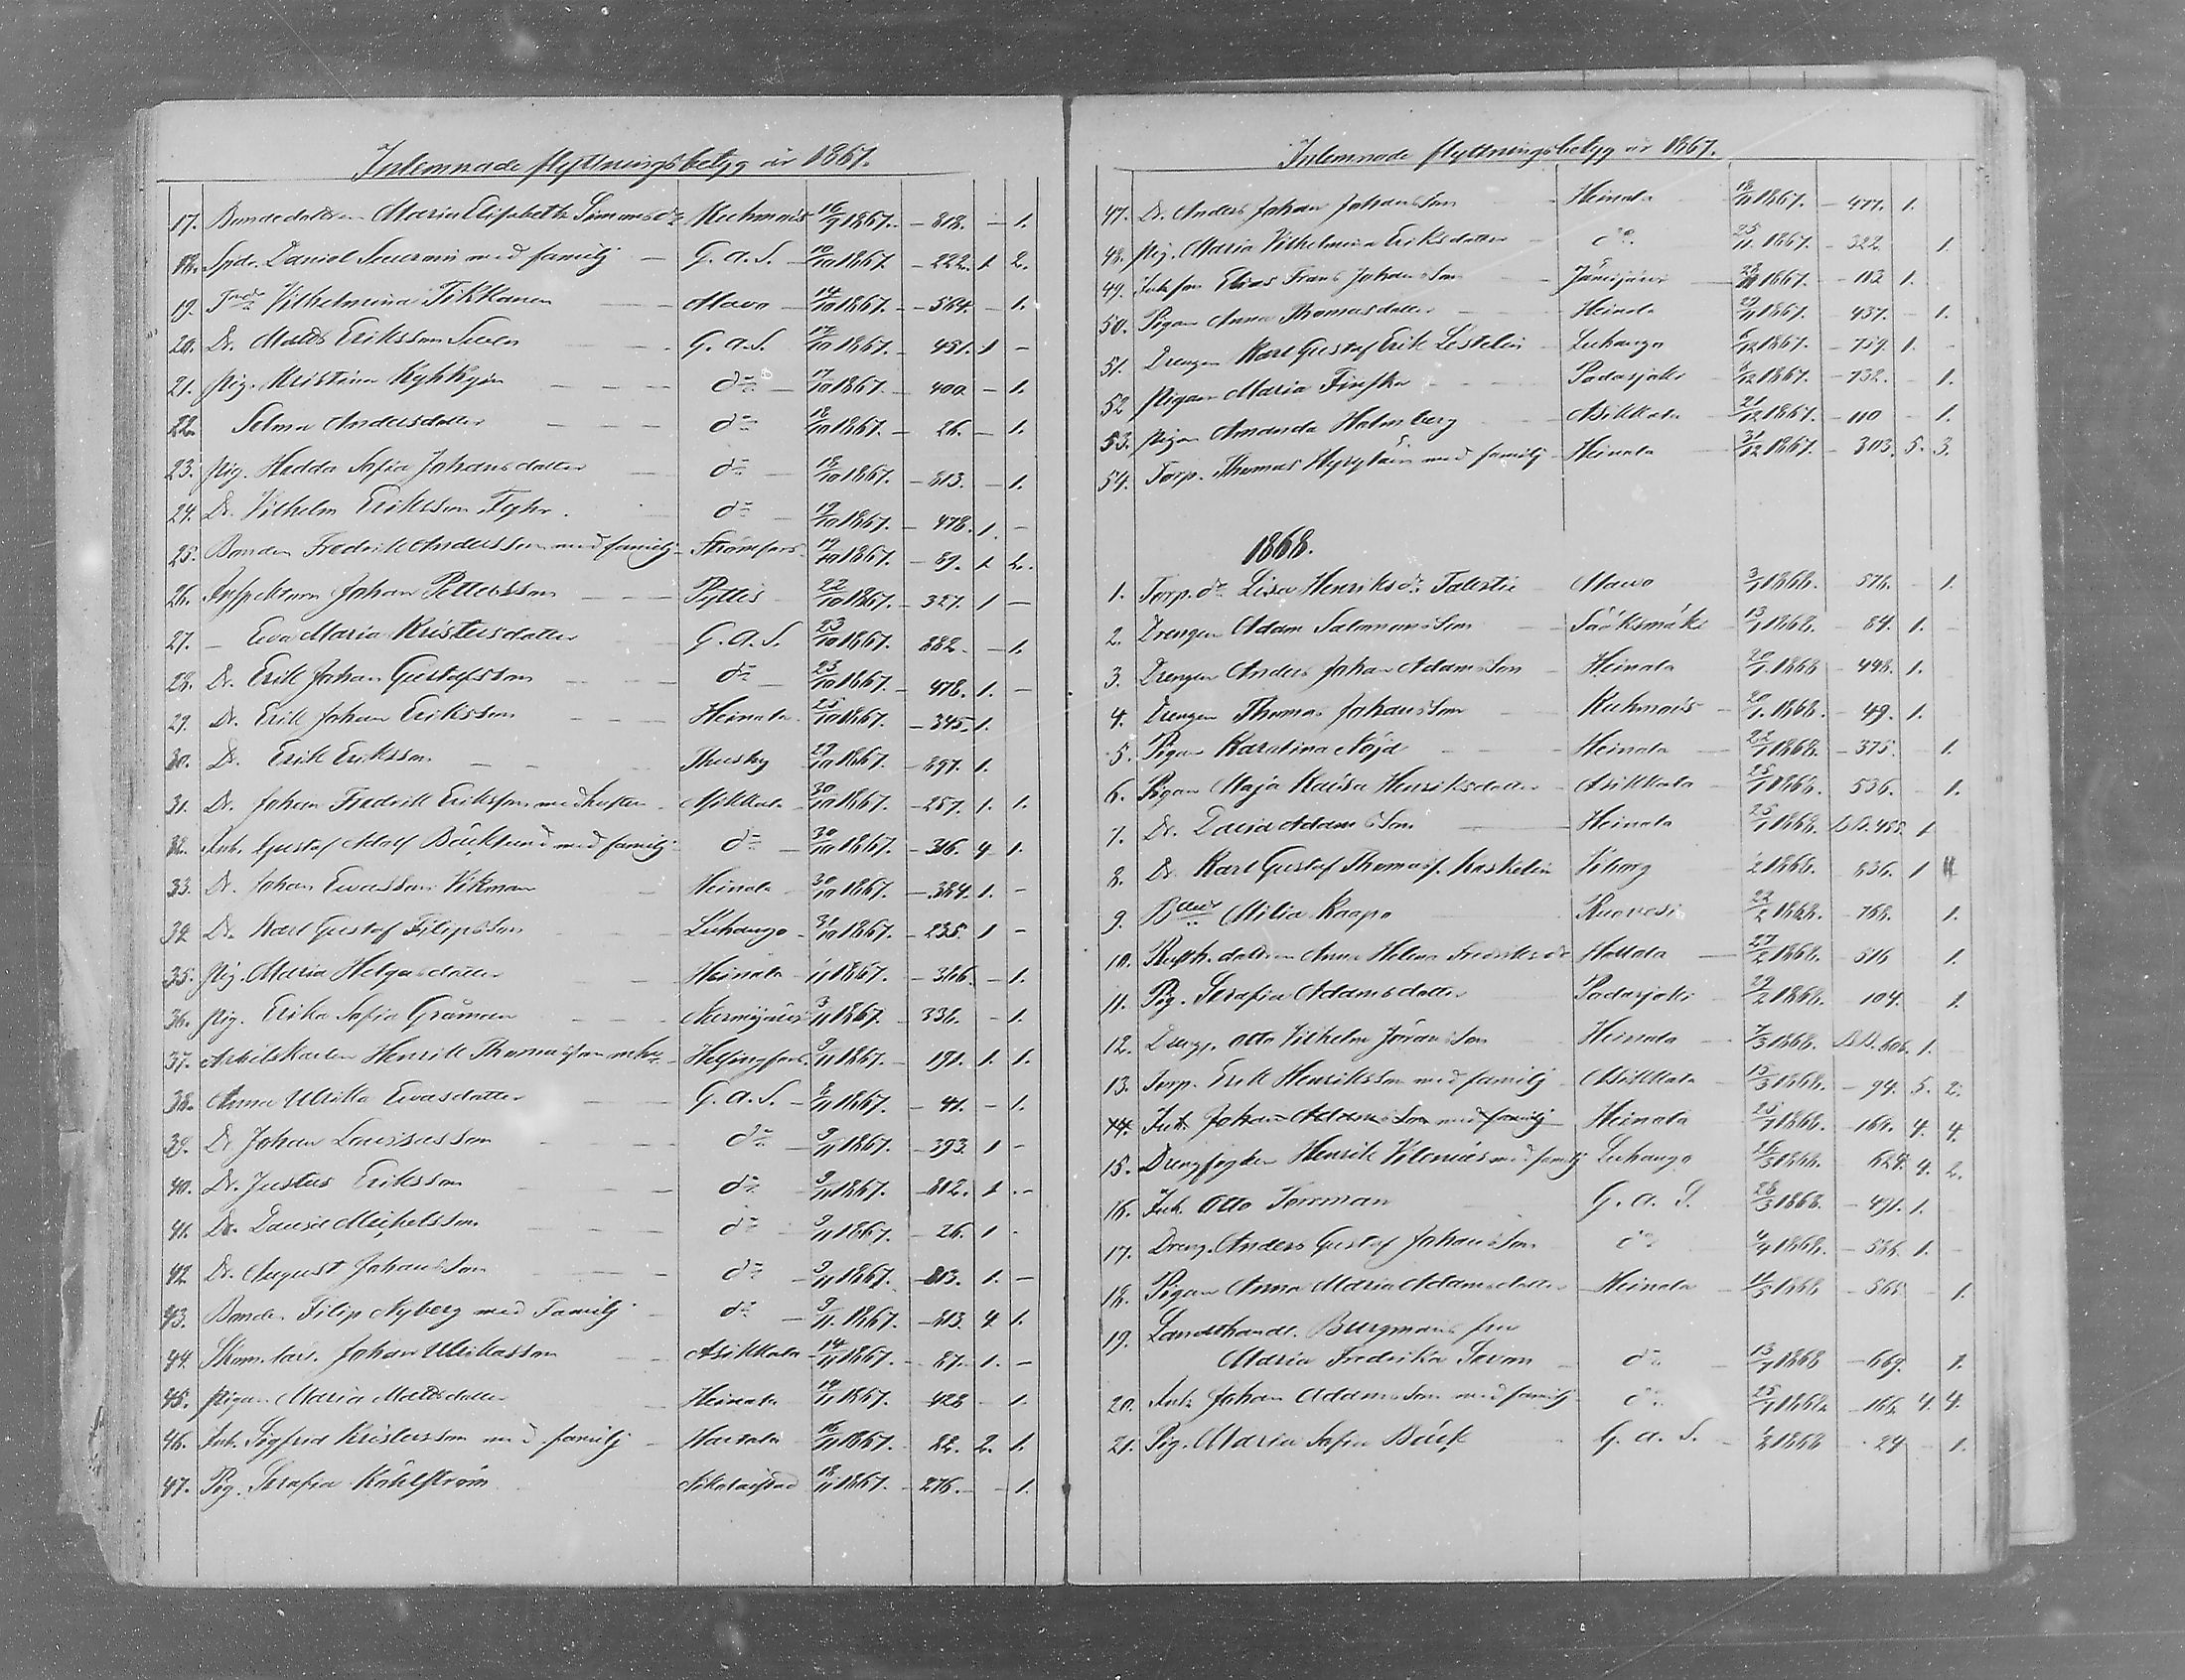 Inlemnade flyttningsbetyg år 1867.
17. Bondedottren Maria Elisabeth Simonsdr Kuhmois 16/9 1867. — 818. — 1.
18. Spdr. Daniel med familj — G. a. S. — 10/10 1867. — 222. 1. 2.
19. Vilhelmina Tikkanen — Mavo — 14/10 1867. — 564. — 1.
20. Dr. Matts Eriksson — G. a. S. 17/10 1867. — 451. 1 —
21. Pig. Kristina — do — 17/10 1867. — 400 — 1.
22. Selma Andersdotter — do 18/10 1867. — 26. — 1.
23. Pig. Hedda Sofia Johansdotter — do — 18/10 1867. — 813. — 1.
24. Dr. Vilhelm Eriksson Fyhr. do — 19/10 1867. — 478. 1. —
25. Bonden Fredrik Andersson med familj — Strömfors 19/10 1867. — 89. 1. 2.
26. Inspektorn Johan Pettersson — Pyttis 22/10 1867. — 327. 1 —
27. — Eva Maria Kristersdotter G. a. S. 23/10 1867. 882. — 1.
28. Dr. Erik Johan Gustafsson — do — 23/10 1867. — 478. 1. —
29. Dr. Erik Johan Eriksson — Heinola 25/10 1867. — 345. 1.
30. Dr. Erik Eriksson — Thusby 29/10 1867. — 297. 1.
31. Dr. Johan Fredrik Eriksson med hustru Asikkala 30/10 1867. — 257. 1. 1.
32. Inh. Gustaf Adolf Bäcklund med familj do — 30/10 1867. — 316. 4. 1.
33. Dr. Johan Evasson Vikman Heinola 30/10 1867. — 384. 1. —
34. Dr. Karl Gustaf Filipsson Luhango — 31/10 1867. — 235. 1 —
35. Pig. Maria Helgasdotter — Heinola 1/11 1867. — 346. — 1.
36. Pig. Erika Sofia Gråman — Nurmijärvi 3/11 1867. — 336. — 1.
37. Arbetskarlen Henrik Thomasson — Helsingfors. 9/11 1867. — 191. 1. 1.
38. Anna Ulrika Evasdotter — G. a. S. — 8/11 1867. — 41. — 1.
39. Dr Johan — do — 9/11 1867. — 393. 1 —
40. Dr. Justus Eriksson — do 9/11 1867. — 812. 1. —
41. Dr. David Michelsson do — 9/11 1867. — 26. 1 .
42 Dr. August Johansson — do — 9/11 1867. — 813. 1. —
43. Bonden Filip Nyberg med Familj — do — 9/11. 1867. — 813. 4. 1.
44. Johan Ulrikasson Asikkala 14/11 1867. — 87. 1. —
45. Pigan Maria Mattsdotter Heinola 14/11 1867. 428 — 1.
46. Inh. Sigfrid Kristersson med familj — Hartola 16/11 1867. — 82. 2. 1.
47. Pig. Serafia Kåhlström Nikolaistad 18/11 1867. — 276. — 1.
Inlemnade flyttningsbetyg år 1867.
47. Dr. Anders Johan Johansson Heinola 18/11 1867. — 477. 1.
48. Pig. Maria Vilhelmina Eriksdotter — do 25/11 1867. — 322. 1.
49. Elias Frans Johansson Jämijärvi 28/11 1867. — 113 1.
50. Pigan Anna Thomasdotter — Heinola 29/11 1867. — 437. — 1.
51. Drengen Karl Gustaf Erik Lestelin Luhango 6/12 1867. — 759. 1. —
52 Pigan Maria — Padasjoki 8/12 1867. — 732. — 1.
53. Pigan Amanda Holmberg Asikkala 21/12 1867. — 110 — 1.
54. Torp. Thomas med familj — Heinola 31/12 1867. — 303. 5. 3.
1868.
1. Torp. dr Lisa Henriksdr Talestie Mavo 3/1 1868. 576. — 1.
2. Drengen Adam Salomonsson — Sääksmäki 13/1 1868. — 84. 1. —
3. Drengen Anders Johan Adamsson — Heinola 20/1 1868 — 498. 1.
4. Drengen Thomas Johansson Kuhmois — 20/1. 1868. — 49. 1.
5. Pigan Karolina Nöjd — Heinola 22/1 1868. — 375. 1.
6. Pigan Maja Kaisa Henriksdotter — Asikkala 25/1 1868. 536. — 1.
7. Dr. David Adamsson — Heinola 25/1 1868. 455. 1
8. Dr. Karl Gustaf Thomass. Kaskelin Viborg 2 1868. 836. 1
9. Milia Kaapo Ruovesi 22/2 1868. — 768. 1.
10. Anna Helena Fredriksdr Hollola — 27/2 1868. — 516 1.
11. Pig. Serafia Adamsdotter Padasjoki 29/2 1868. — 104. 1.
12. Otto Vilhelm Göransson Heinola — 7/3 1868. 606. 1.
13. Torp. Erik Henriksson med familj — Asikkala 15/3 1868. — 94. 5. 2.
14. Inh. Johan Adamsson med familj — Heinola 25/1 1868. — 164. 4. 4.
15. Henrik Vilenius med familj Luhango 1868. 624. 4. 2.
16. Inh. Otto Torrman G. a. S. 28/3 1868. — 491. 1.
17. Dreng. Anders Gustaf Johansson do 4/4 1868. — 586. 1. —
18. Pigan Anna Maria Adamsdotter — Heinola — 11/5 1868 — 565 — 1.
19. Landthandl. Burgmans fru
Maria Fredrika Savon — do 13/7 1868 — 669. 1.
20. Inh. Johan Adamsson med familj do 25/1 1868. — 164. 4. 4.
21. Pig. Maria Sofia Bäck G. a. S. — 1868 — 24 — 1.